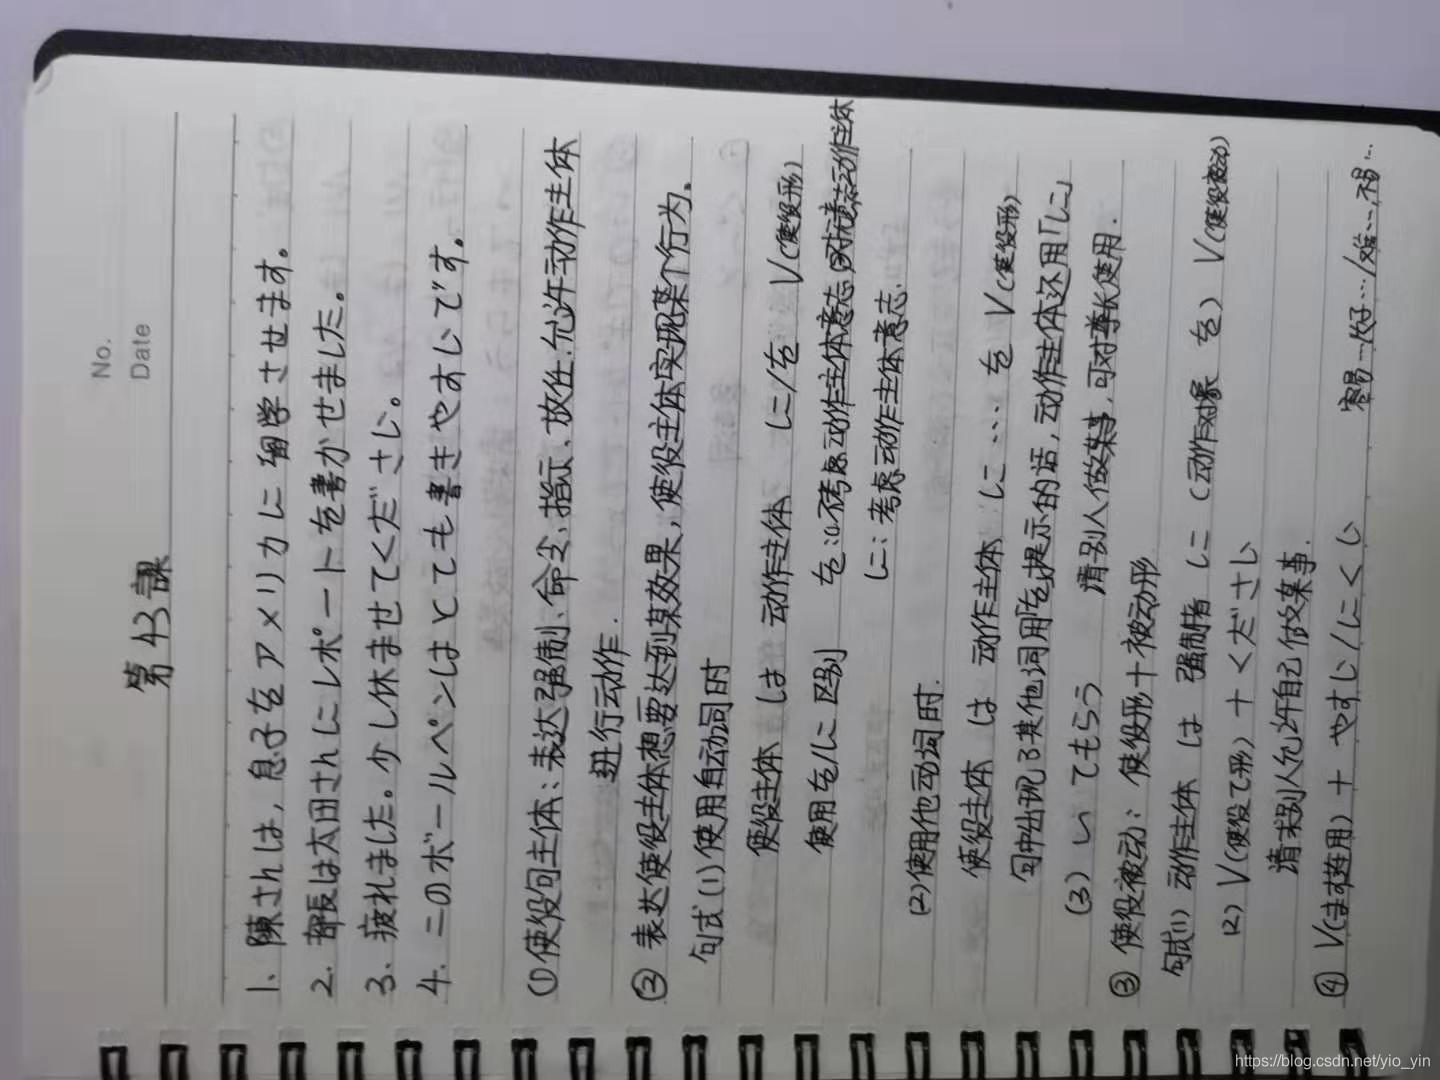 No.
Date
第43課
1、陳さんは，息子をアメリカに留学させます。
2、部長は太田さんにレポートを書かせました。
3、疲れました。少し休ませてください。
4、このボールペンはとても書きやすいです。
①使役句主体：表达强制、命令、指示、放任、允许动作主体
进行动作．
② 表达使役主体想要达到某效果，使役主体实现某个行为．
句式（1）使用自动词时
使役主体 は 动作主体 に/を V（使役形）
使用を/に 区别 を：不考虑动作主体意志
に：考虑动作主体意志．
（2）使用他动词时．
使役主体 は 动作主体 に … を V（使役形）
句中出现了其他词用を提示的话，动作主体还用「に」
（3）いてもらう 请别人做某事，可对尊长使用．
③ 使役被动：使役形＋被动形
句式（1）动作主体 は 强制者 に（动作对象 を）V（使役被动）
（2）V（使役て形）＋ ください
请求别人允许自己做某事．
④ V（ます连用）＋ やすい/にくい 容易…/好…/难…，不易…
https://blog.csdn.net/yio_yin